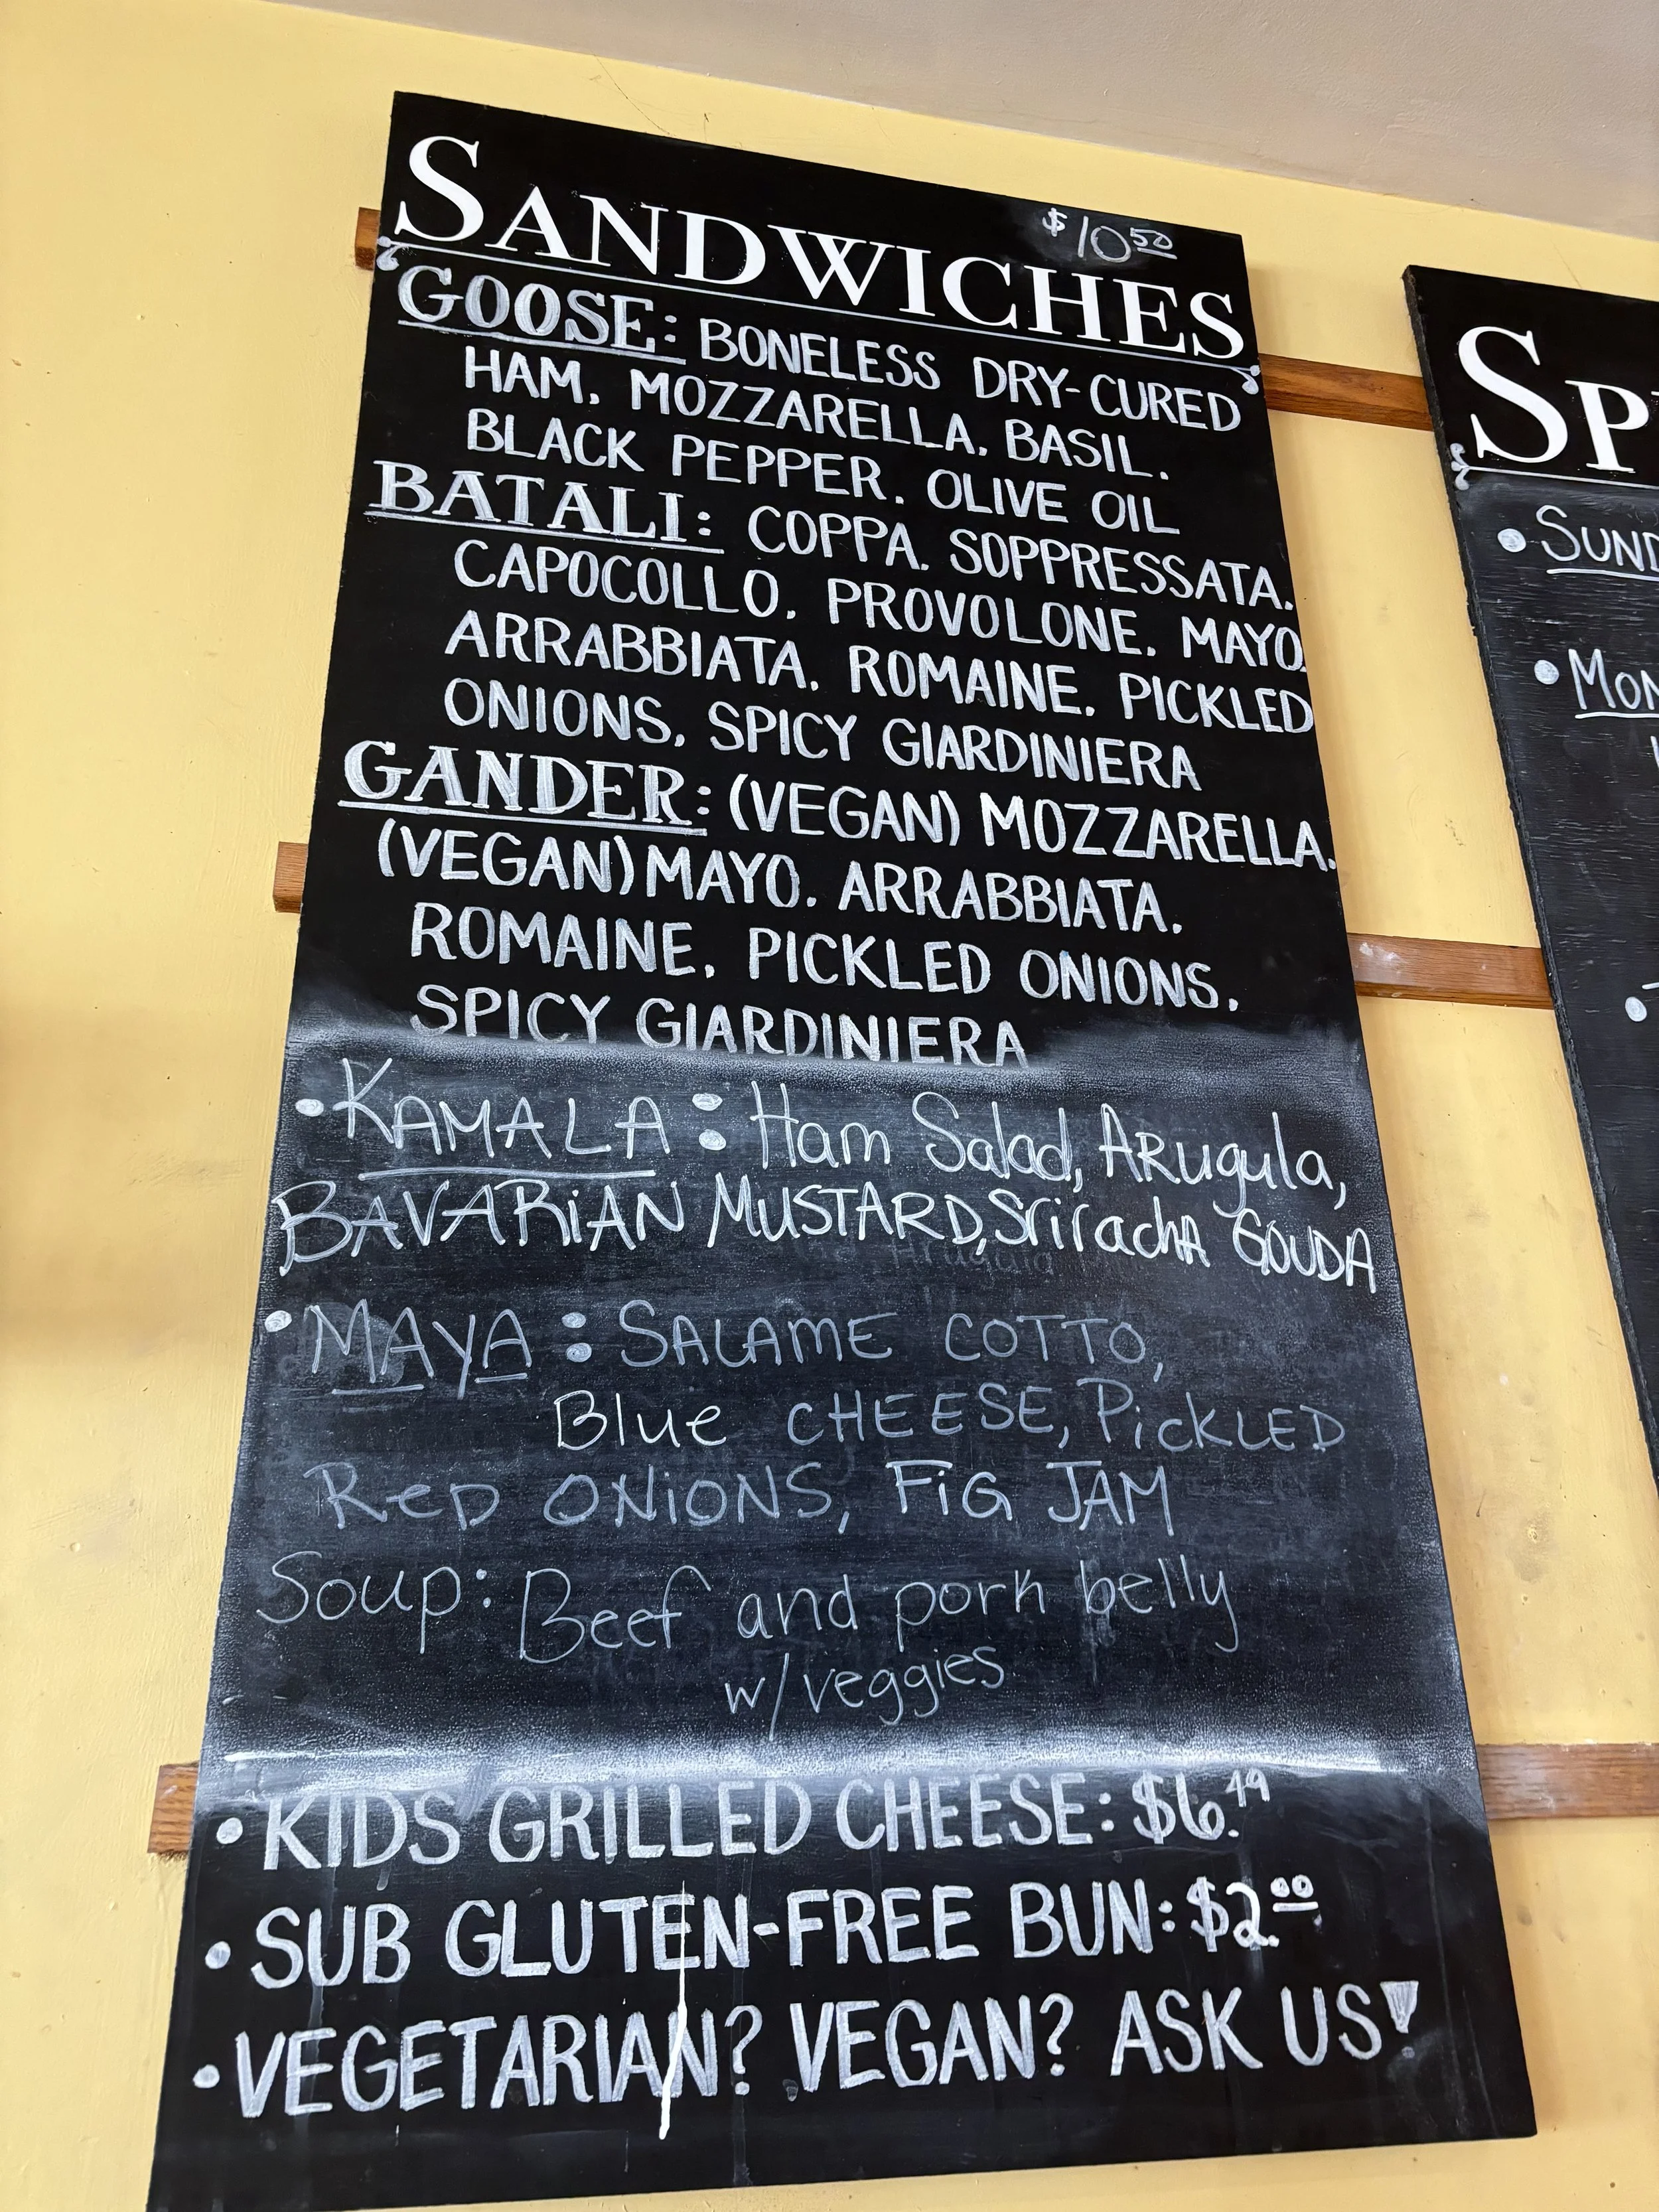 SANDWICHES $10.50
GOOSE: BONELESS DRY-CURED
HAM. MOZZARELLA. BASIL.
BLACK PEPPER. OLIVE OIL
BATALI: COPPA. SOPPRESSATA.
CAPOCOLLO. PROVOLONE. MAYO.
ARRABBIATA. ROMAINE. PICKLED
ONIONS. SPICY GIARDINIERA
GANDER: (VEGAN) MOZZARELLA.
(VEGAN) MAYO. ARRABBIATA.
ROMAINE. PICKLED ONIONS.
SPICY GIARDINIERA
• KAMALA: Ham Salad, ARugula,
BAVARiAN MUSTARD, SrirachA GOUDA
• MAYA: SALAME COTTO,
Blue CHEESE, PiCKLED
ReD ONiONS, FiG JAM
Soup: Beef and pork belly
w/veggies
• KIDS GRILLED CHEESE: $6.49
• SUB GLUTEN-FREE BUN: $2.00
• VEGETARIAN? VEGAN? ASK US!
SP
• SUND
• MON